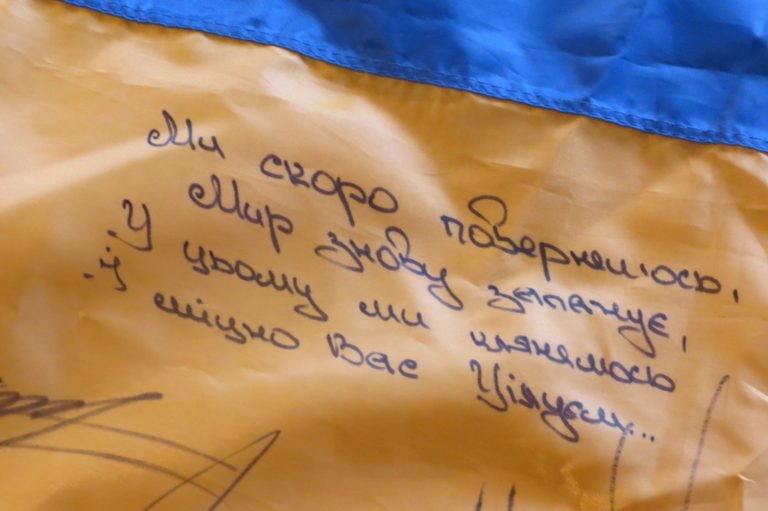 Ми скоро повернемось,
Мир знову запанує,
У цьому ми клянемось
й міцно Вас Цілуєм...